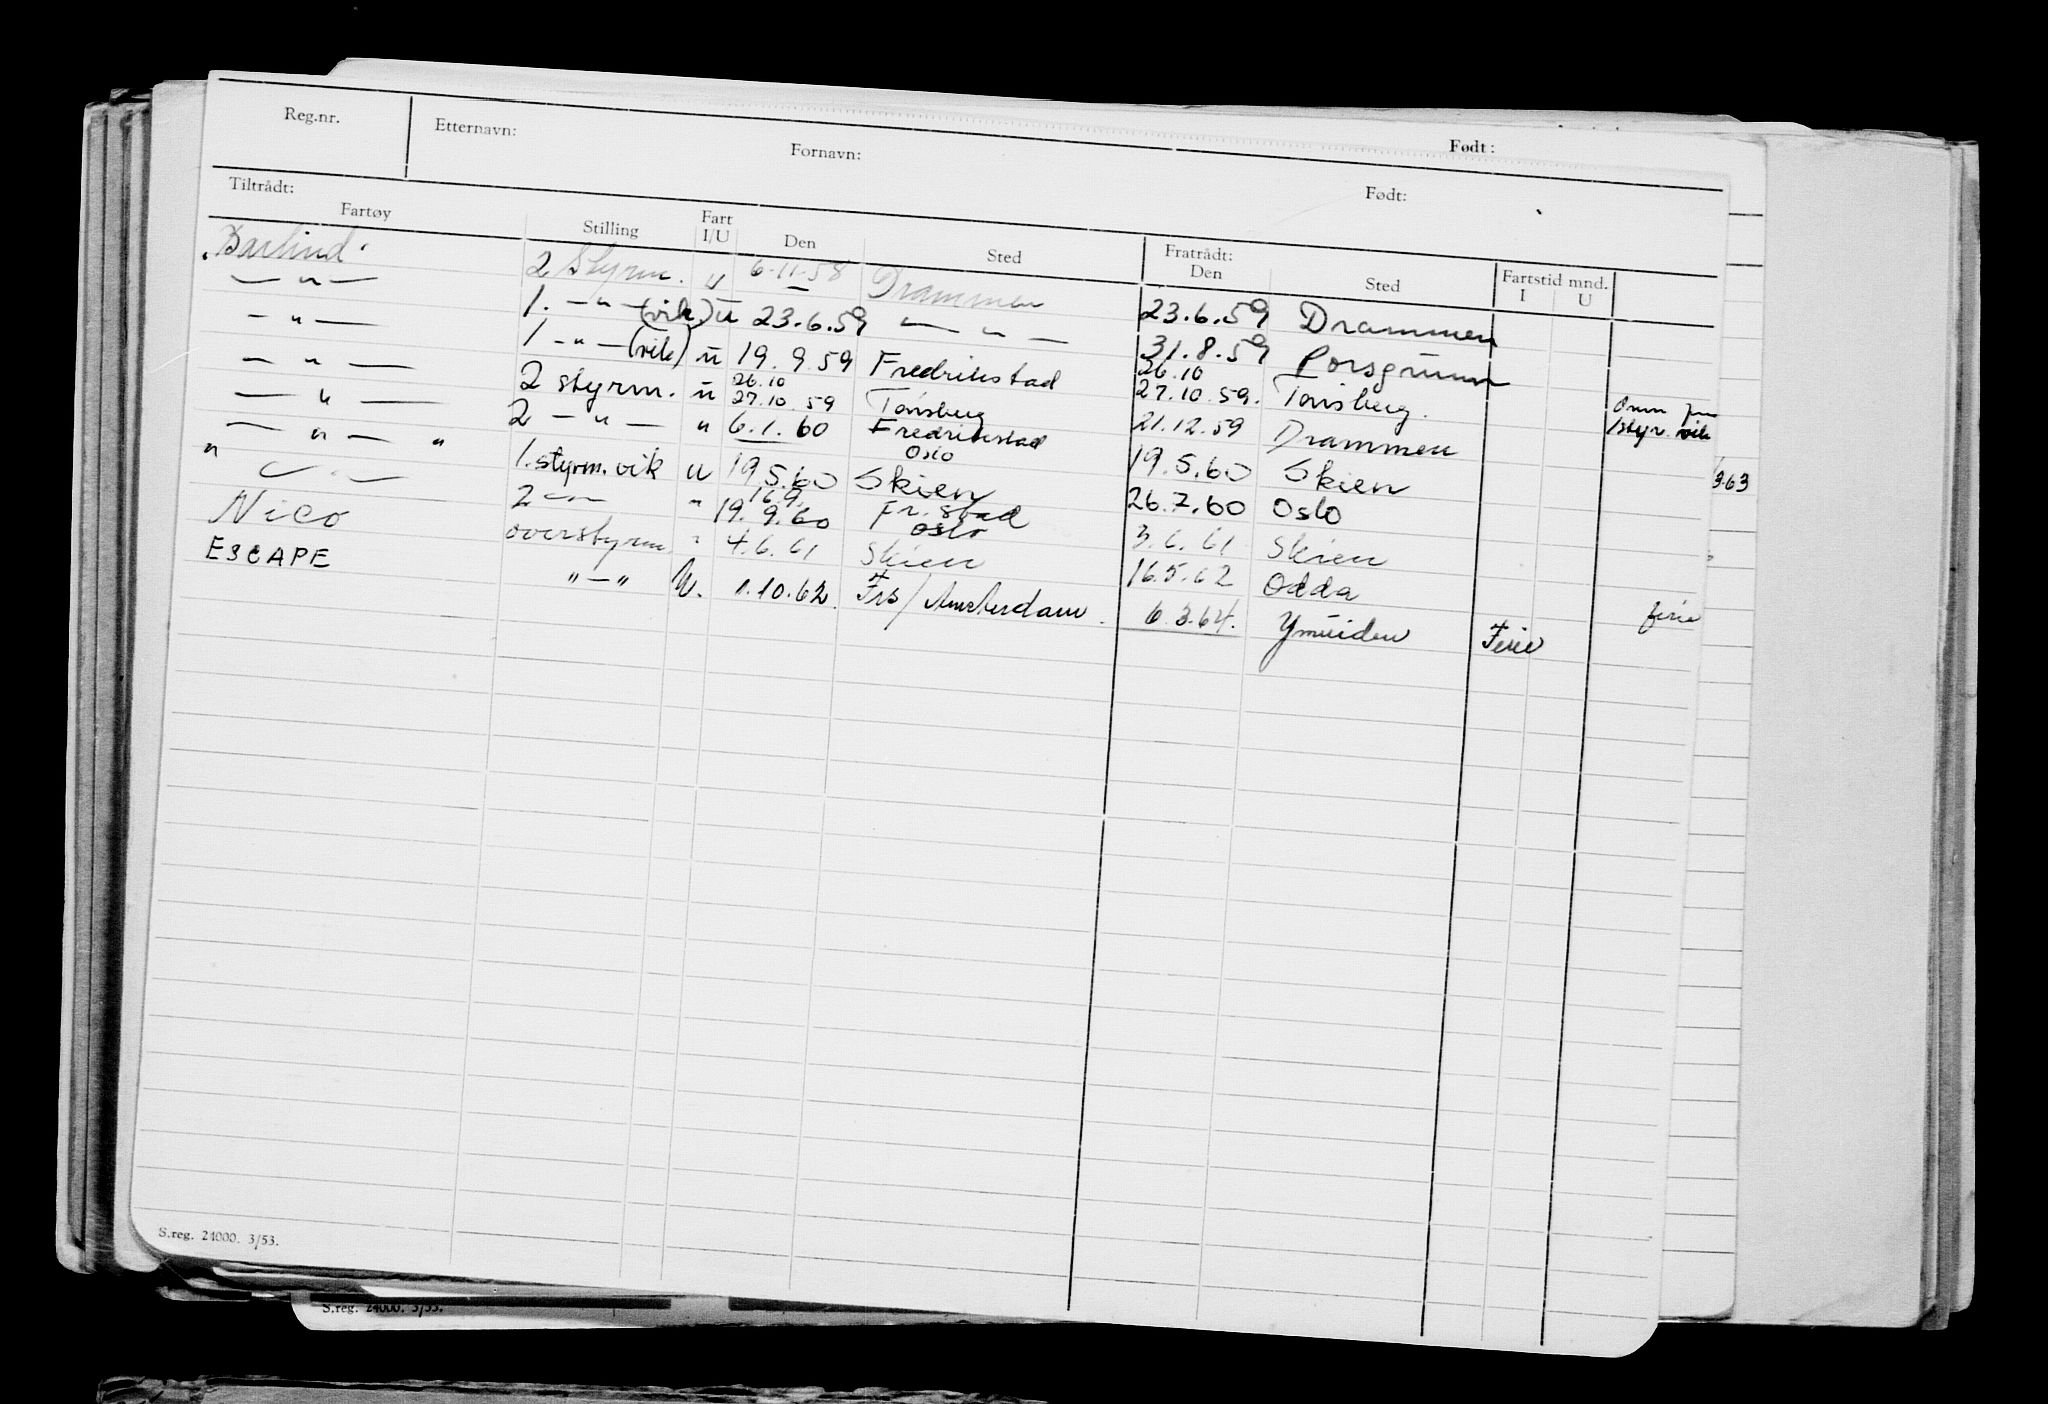 Reg.nr. Etternavn: Fornavn: Født:
Født:
Tiltrådt: Fratrådt:
Fartøy Stilling Fart I/U Den Sted Den Sted Fartstid mnd. I U
"Barlind" 2 Styrm. u 6.11.58 Drammen 23.6.59 Drammen
— " — 1. — " — (vik) u 23.6.59 — " — 31.8.59 Porsgrunn
— " — 1 — " — (vik) u 19.9.59 Fredrikstad 26.10 27.10.59. Tønsberg.
— " — 2 styrm. u 26.10 27.10.59 Tønsberg 21.12.59 Drammen 1styr. vik
— " — 2 — " — " 6.1.60 Fredrikstad Oslo 19.5.60 Skien
— " — " 1. styrm. vik u 19.5.60 Skien 26.7.60 Oslo 3.63
" — " — 2 — " — " 16.9. 19.9.60 Fr.stad Oslo 3.6.61 Skien
Nico overstyrm " 4.6.61 Skien 16.5.62 Odda ferie
ESCAPE " — " U. 1.10.62. Frs/Amsterdam. 6.3.64. Ymuiden Ferie
S.reg. 24000. 3/53.
S.reg. 24000. 3/53.